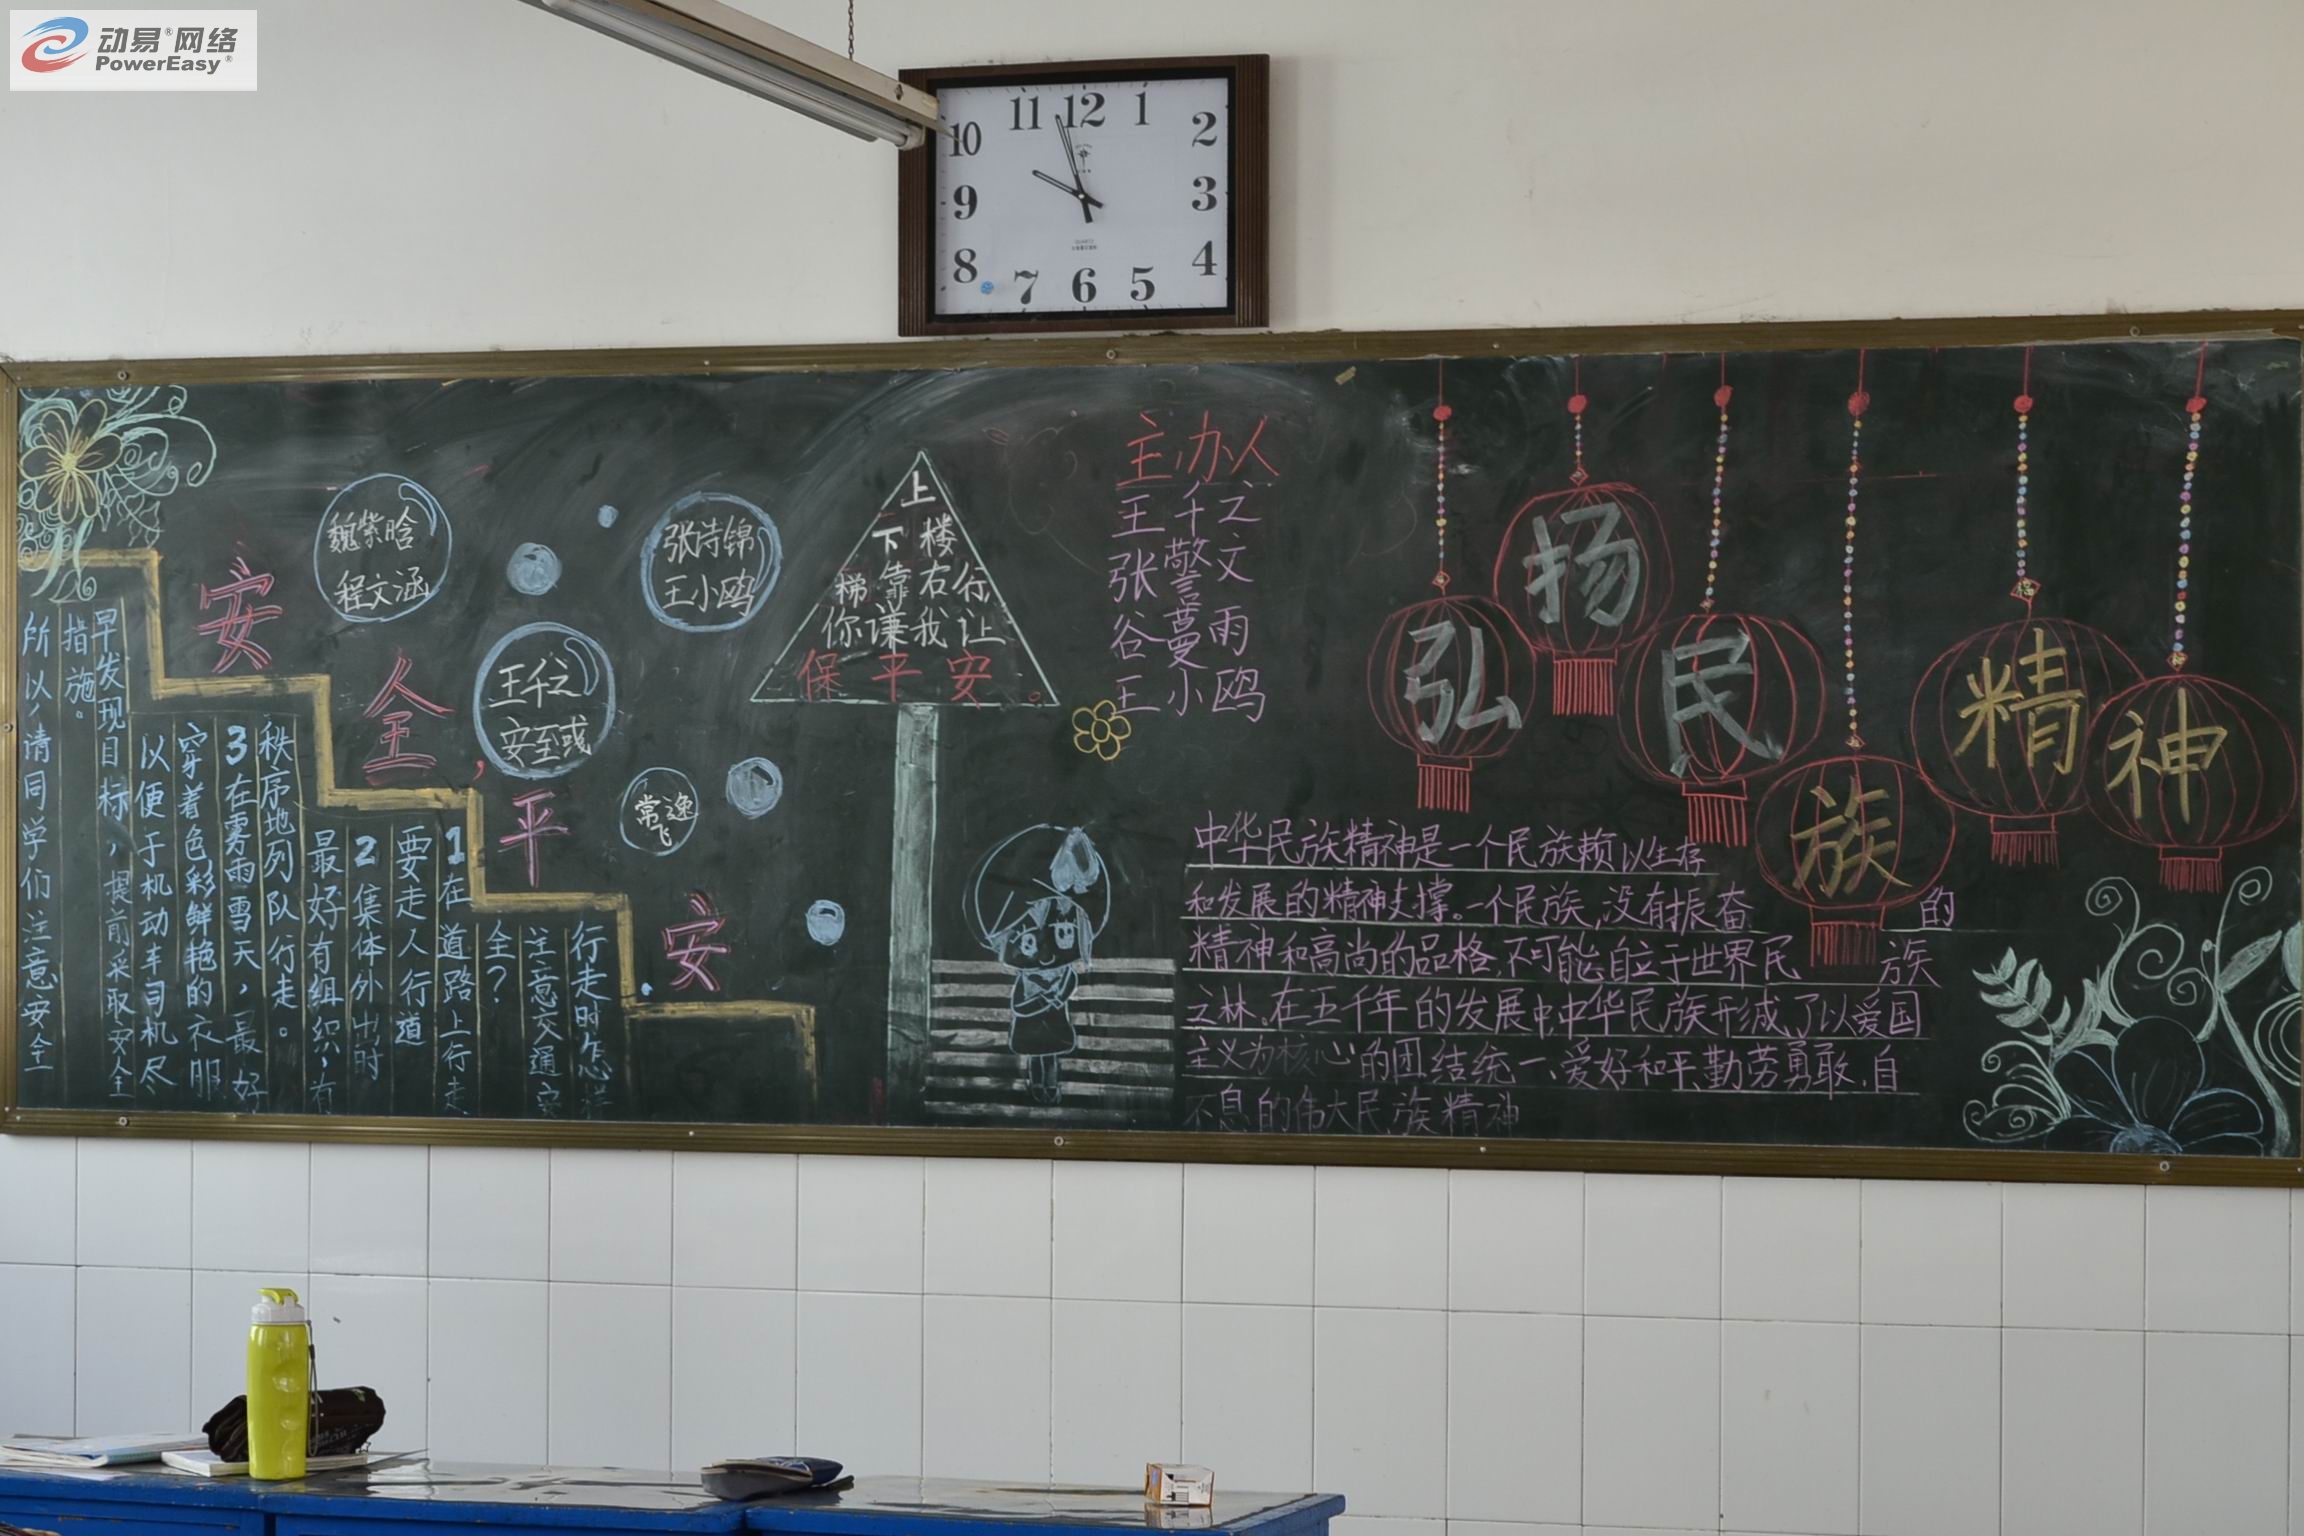 动易®网络
PowerEasy®
11 12 1
10 2
9 3
8 4
7 6 5
QUARTZ
安全，平安
魏紫晗
程文涵
张诗锦
王小鸥
王千之
安至彧
常逸飞
行走时怎样
注意交通安
全？
1在道路上行走
要走人行道
2集体外出时
最好有组织，有
秩序地列队行走。
3在雾雨雪天，最好
穿着色彩鲜艳的衣服
以便于机动车司机尽
早发现目标，提前采取安全
指施。
所以，请同学们注意安全
上
下楼
梯靠右行
你谦我让
保平安。
主办人
王千之
张警文
谷蔓雨
王小鸥
弘扬民族精神
福
中华民族精神是一个民族赖以生存
和发展的精神支撑。一个民族，没有振奋的
精神和高尚的品格，不可能自立于世界民族
之林。在五千年的发展中，中华民族形成了以爱国
主义为核心的团结统一、爱好和平、勤劳勇敢、自
不息的伟大民族精神